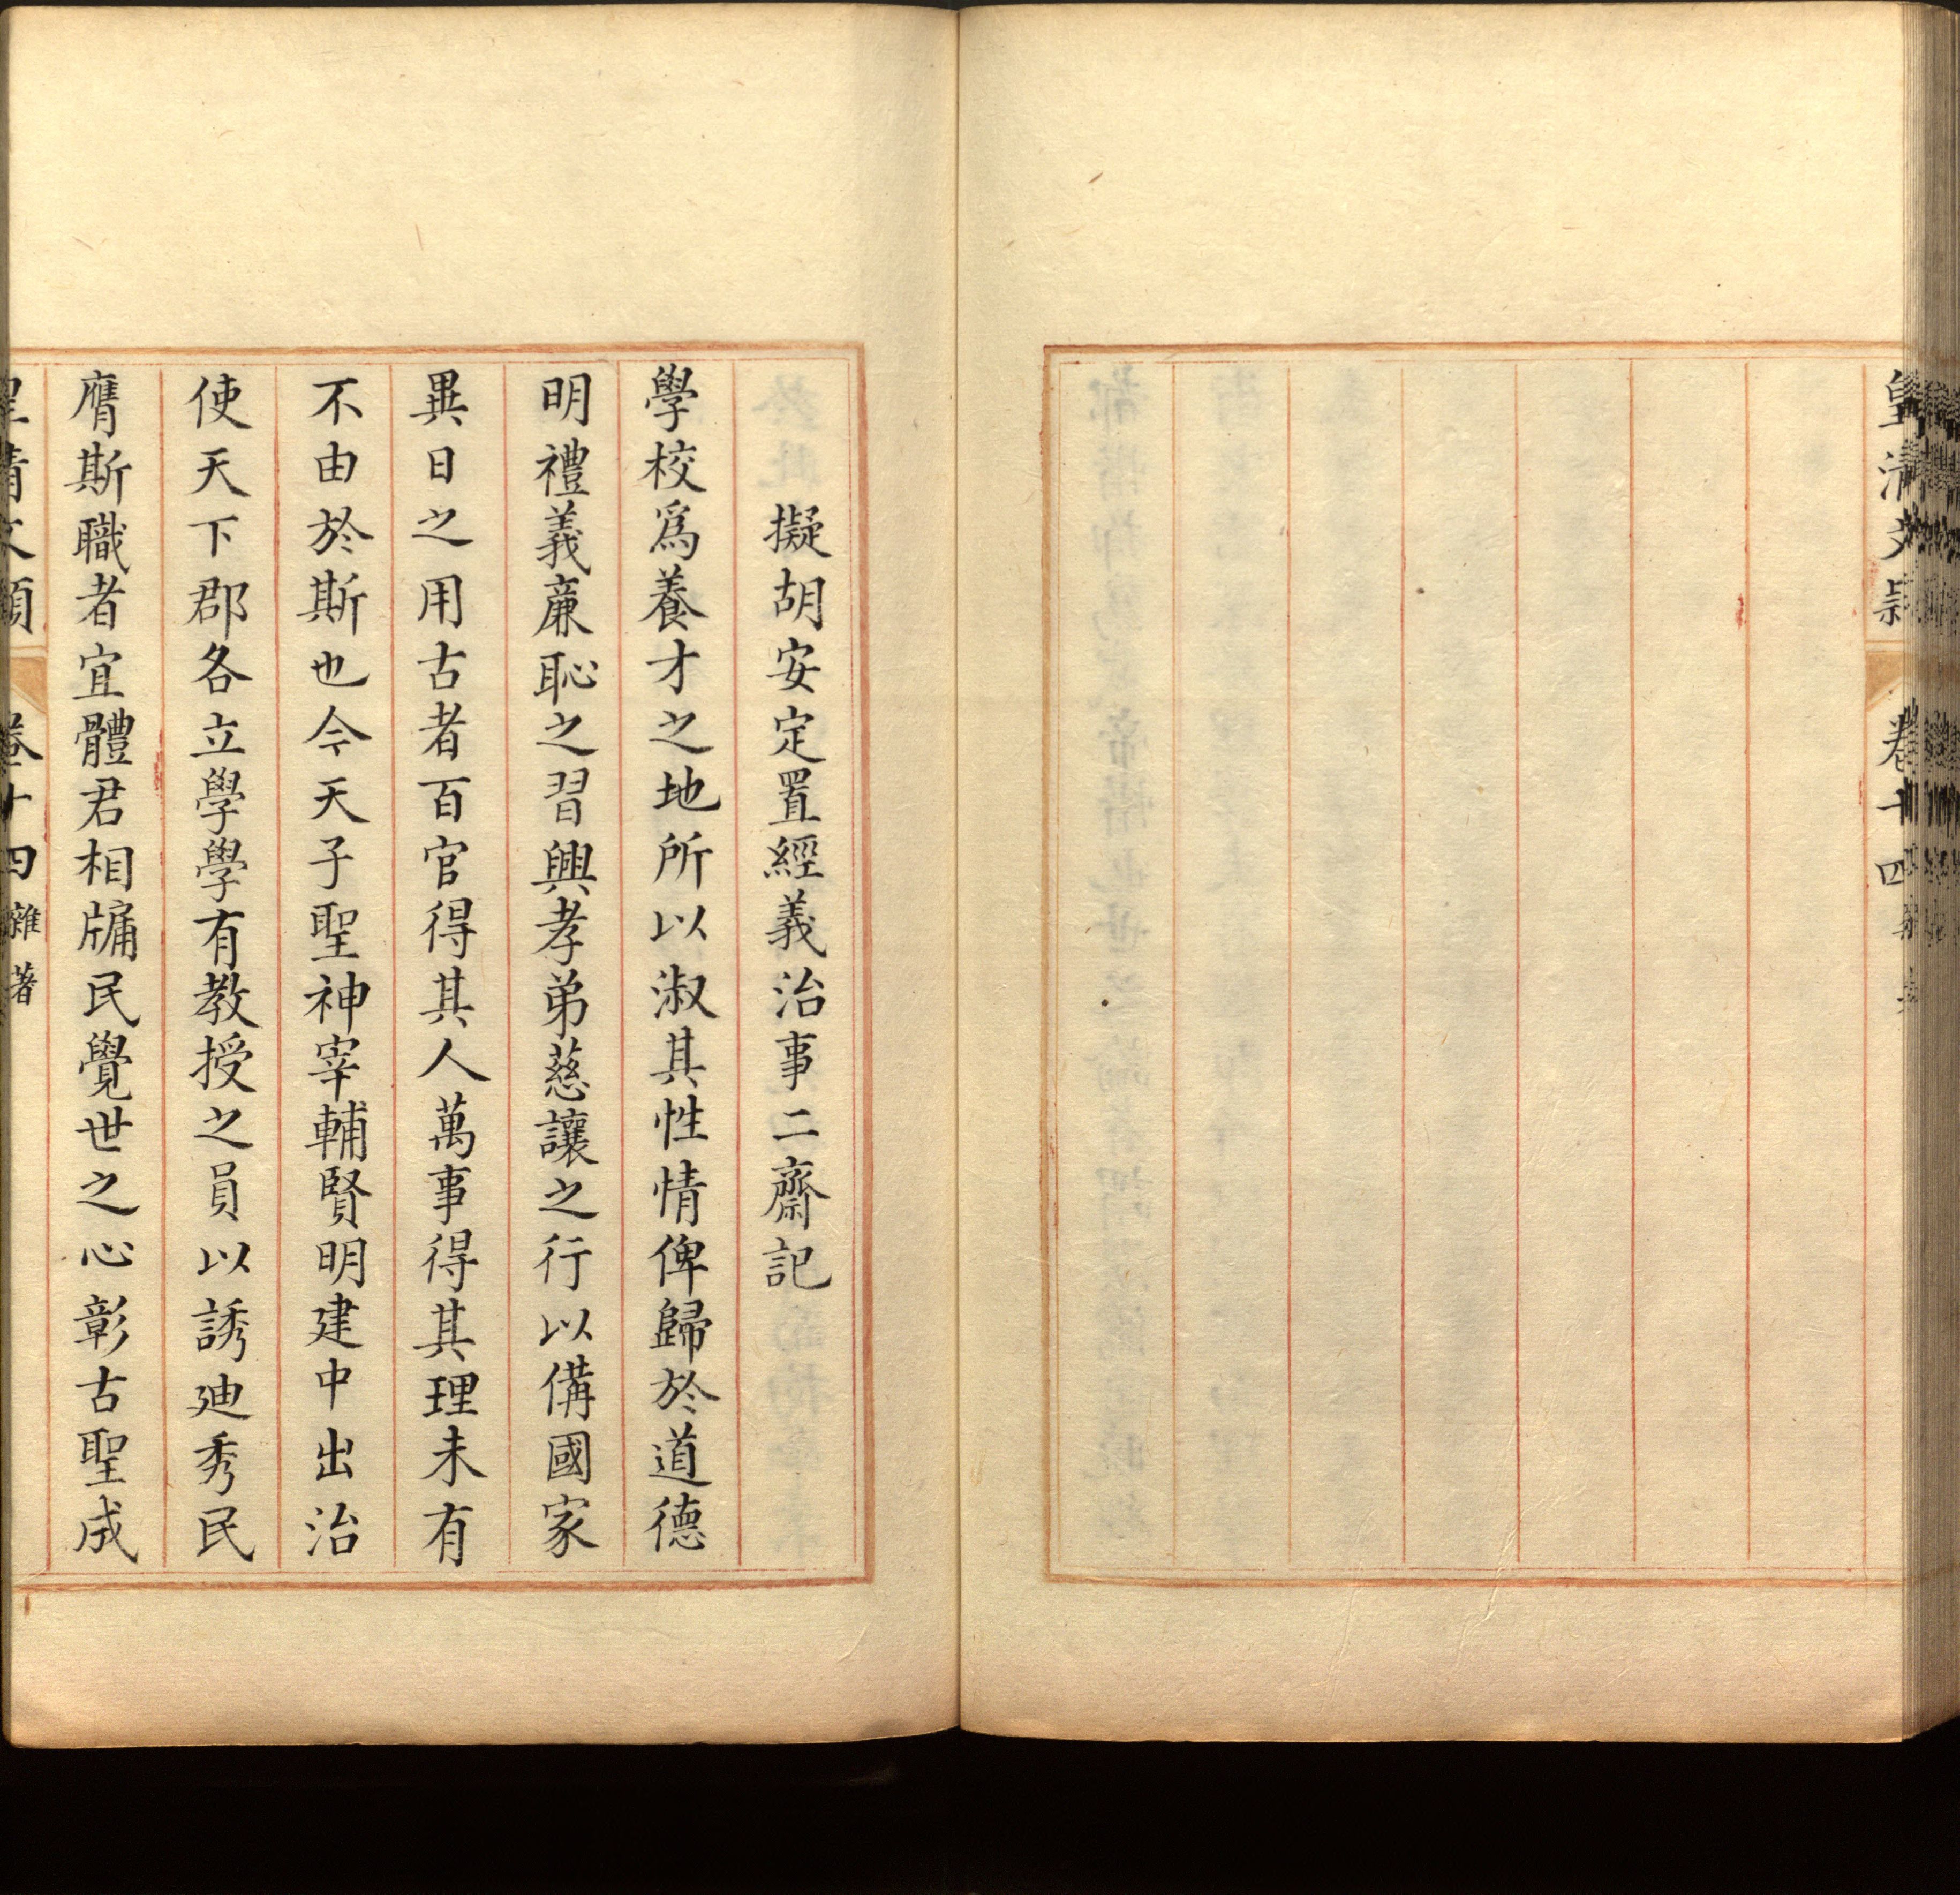 皇清文穎 卷十四
擬胡安定置經義治事二齋記
學校爲養才之地所以淑其性情俾歸於道德
明禮義亷恥之習興孝弟慈讓之行以備國家
異日之用古者百官得其人萬事得其理未有
不由於斯也今天子聖神宰輔賢明建中出治
使天下郡各立學學有教授之員以誘廸秀民
膺斯職者宜體君相牖民覺世之心彰古聖成
皇清文穎 卷十四 雜著